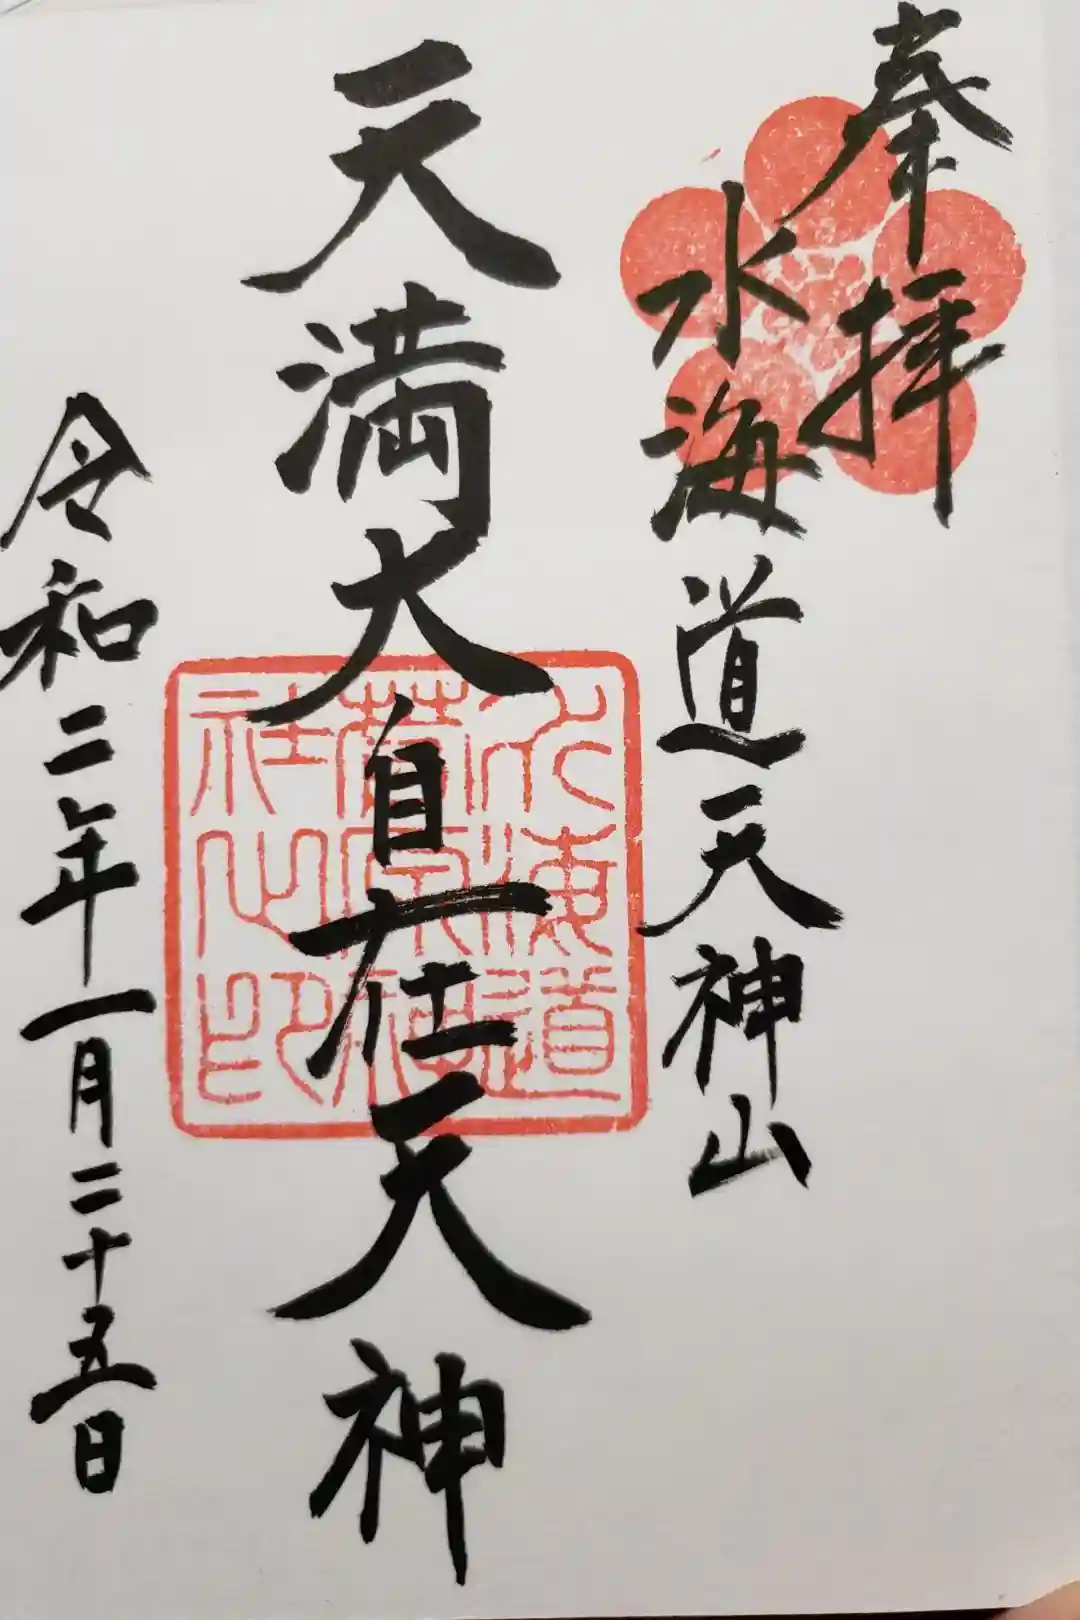 奉拝
水海道天神山
天満大自在天神
令和二年一月二十五日